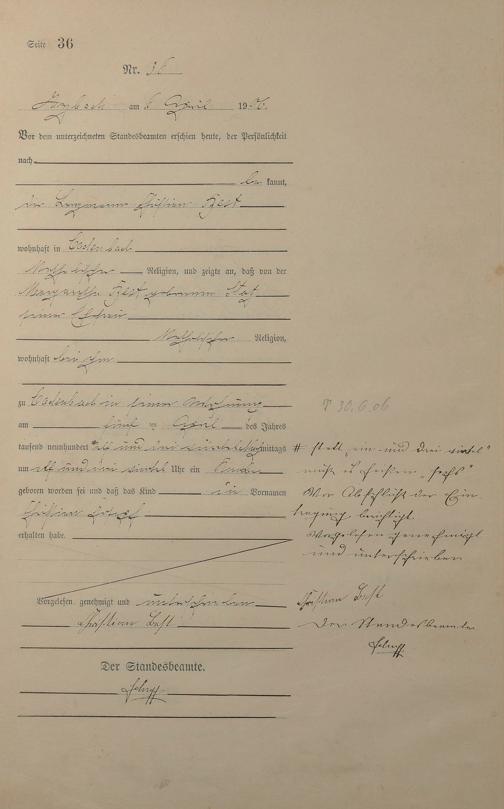 Seite 36
Nr. 36
am 6 April 1906.
Vor dem unterzeichneten Standesbeamten erschien heute, der Persönlichkeit
nach
be kannt,
der Bergmann Christian Best
wohnhaft in
Katholischer Religion, und zeigte an, daß von der
Margaretha Best geborenen
seiner Ehefrau
Katholischer Religion,
wohnhaft bei ihm
zu in seiner Wohnung
am fünf ten April des Jahres
tausend neunhundert mittags
um elf und drei viertel Uhr ein Knabe
geboren worden sei und daß das Kind die Vornamen
Christian Josef
erhalten habe.
Vorgelesen, genehmigt und unterschrieben
Christian Best
Der Standesbeamte.
† 30.6.06
statt "ein und drei viertel"
"sechs"
Vor Abschluß der Ein
tragung berichtigt.
Vorgelesen, genehmigt
und unterschrieben
Christian Best
Der Standesbeamte